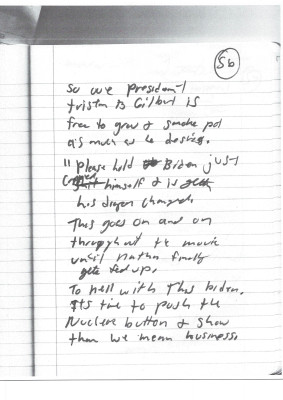 56
So we President
Tristan B Gilbert is
free to grow & smoke pot
as much as he desires.
"Please hold Biden just
crapped himself & is
his diaper changed.
This goes on and on
throughout the movie
until finally
gets fed up.
To hell with this Biden.
It's time to push the
Nuclear button & show
them we mean business.